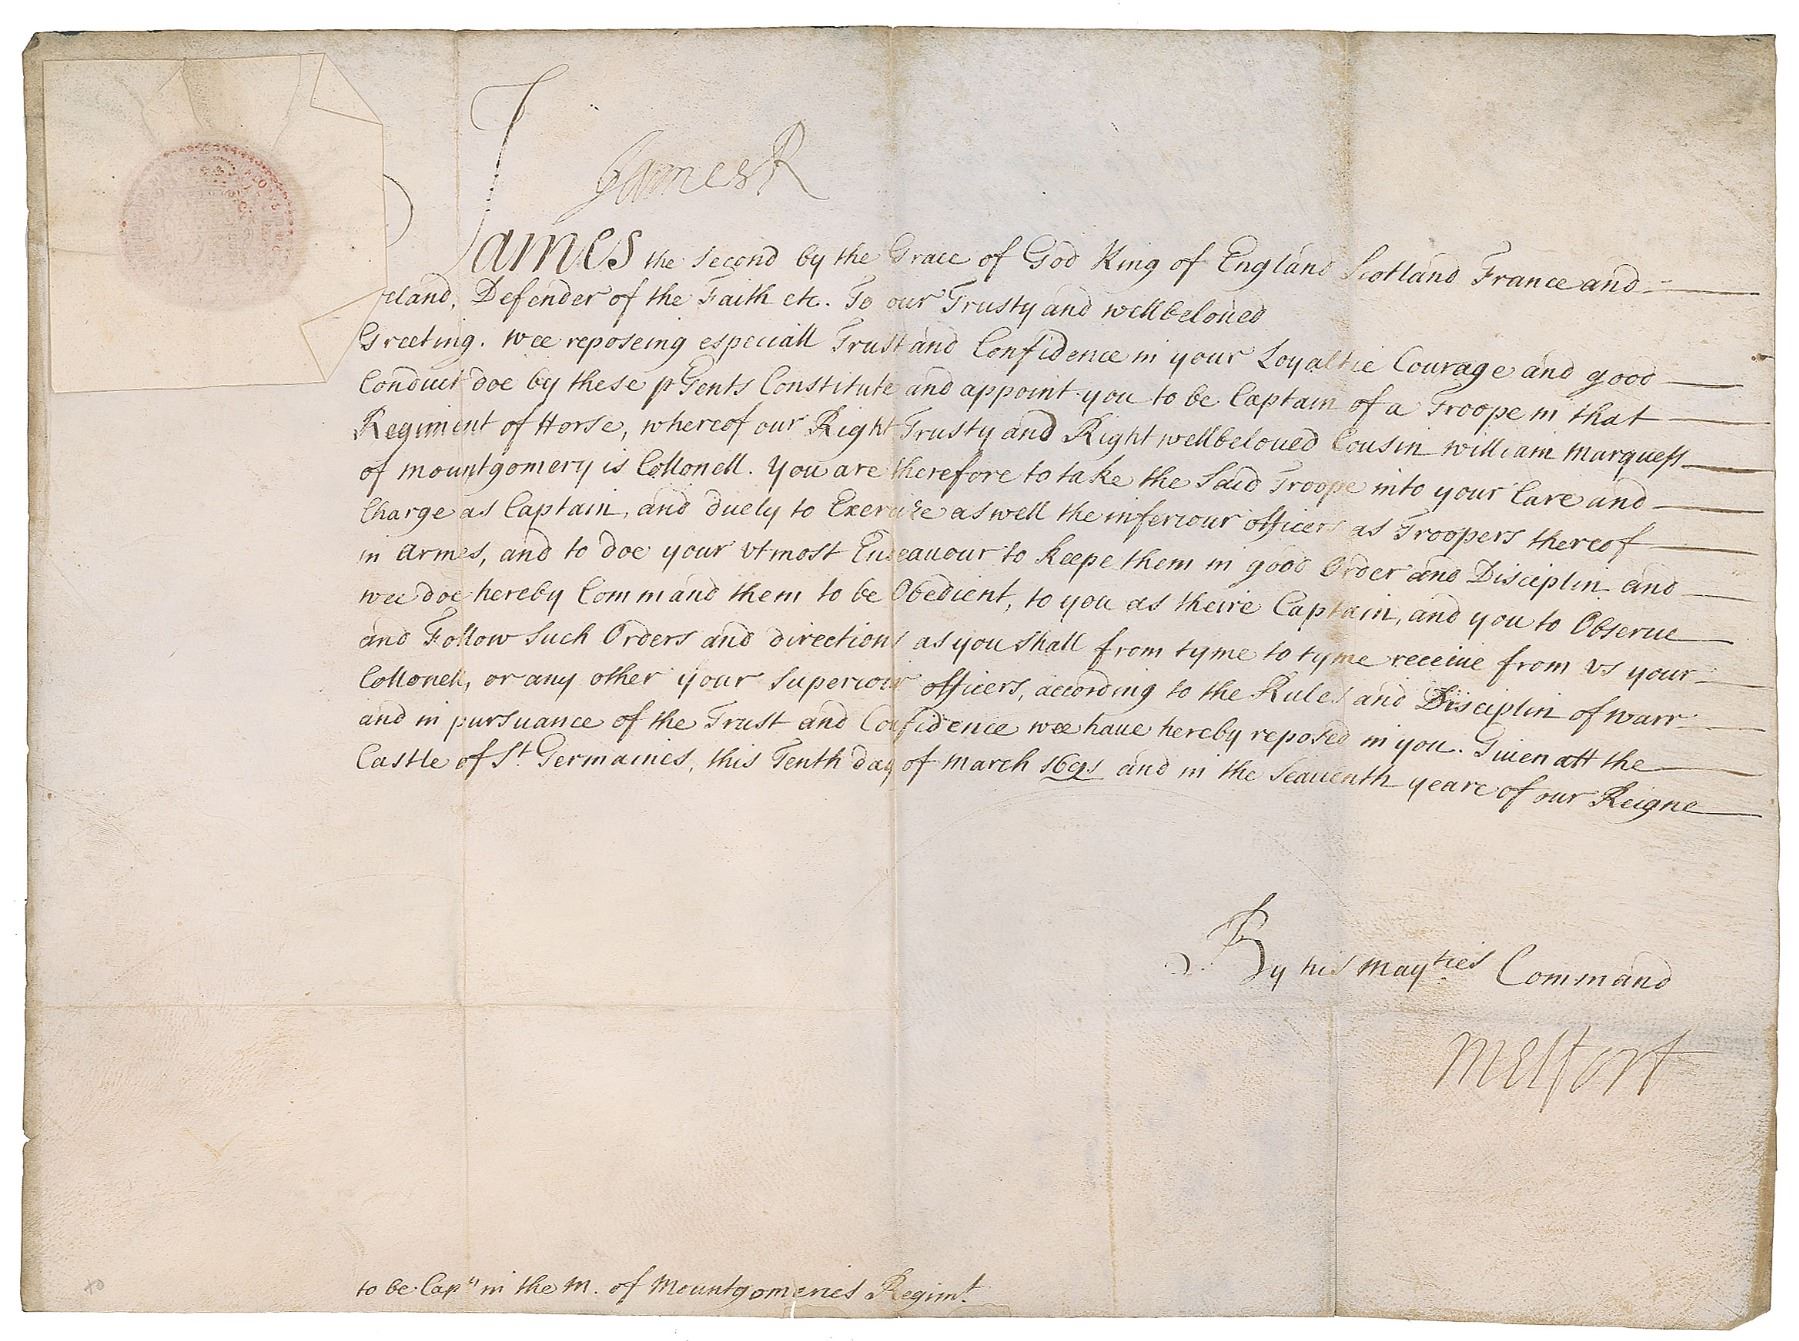 James R
James the Second by the Grace of God King of England Scotland France and
reland, Defender of the Faith etc. To our Trusty and wellbeloued
Greeting. wee reposeing especiall Trust and Confidence in your Loyaltie Courage and good
Conduct doe by these pśents Constitute and appoint you to be Captain of a Troope in that
Regiment of Horse, whereof our Right Trusty and Right wellbeloued Cousin william Marquess
of mountgomery is Collonell. You are therefore to take the Said Troope into your Care and
Charge as Captain, and duely to Exercize as well the inferiour officers as Troopers thereof
in Armes, and to doe your vtmost Endeauour to keepe them in good Order and Disciplin and
wee doe hereby Command them to be Obedient, to you as theire Captain, and you to Observe
and Follow Such Orders and directions as you shall from tyme to tyme receiue from vs your
Collonell, or any other your Superiour officers, according to the Rules and Disciplin of warr
and in pursuance of the Trust and Confidence wee haue hereby reposed in you. Giuen att the
Castle of St. Germaines, this Tenth day of March 1691 and in the Seauenth yeare of our Reigne
By his Mayties Command
Melfort
to be Capn in the M. of Mountgomeries Regimt.